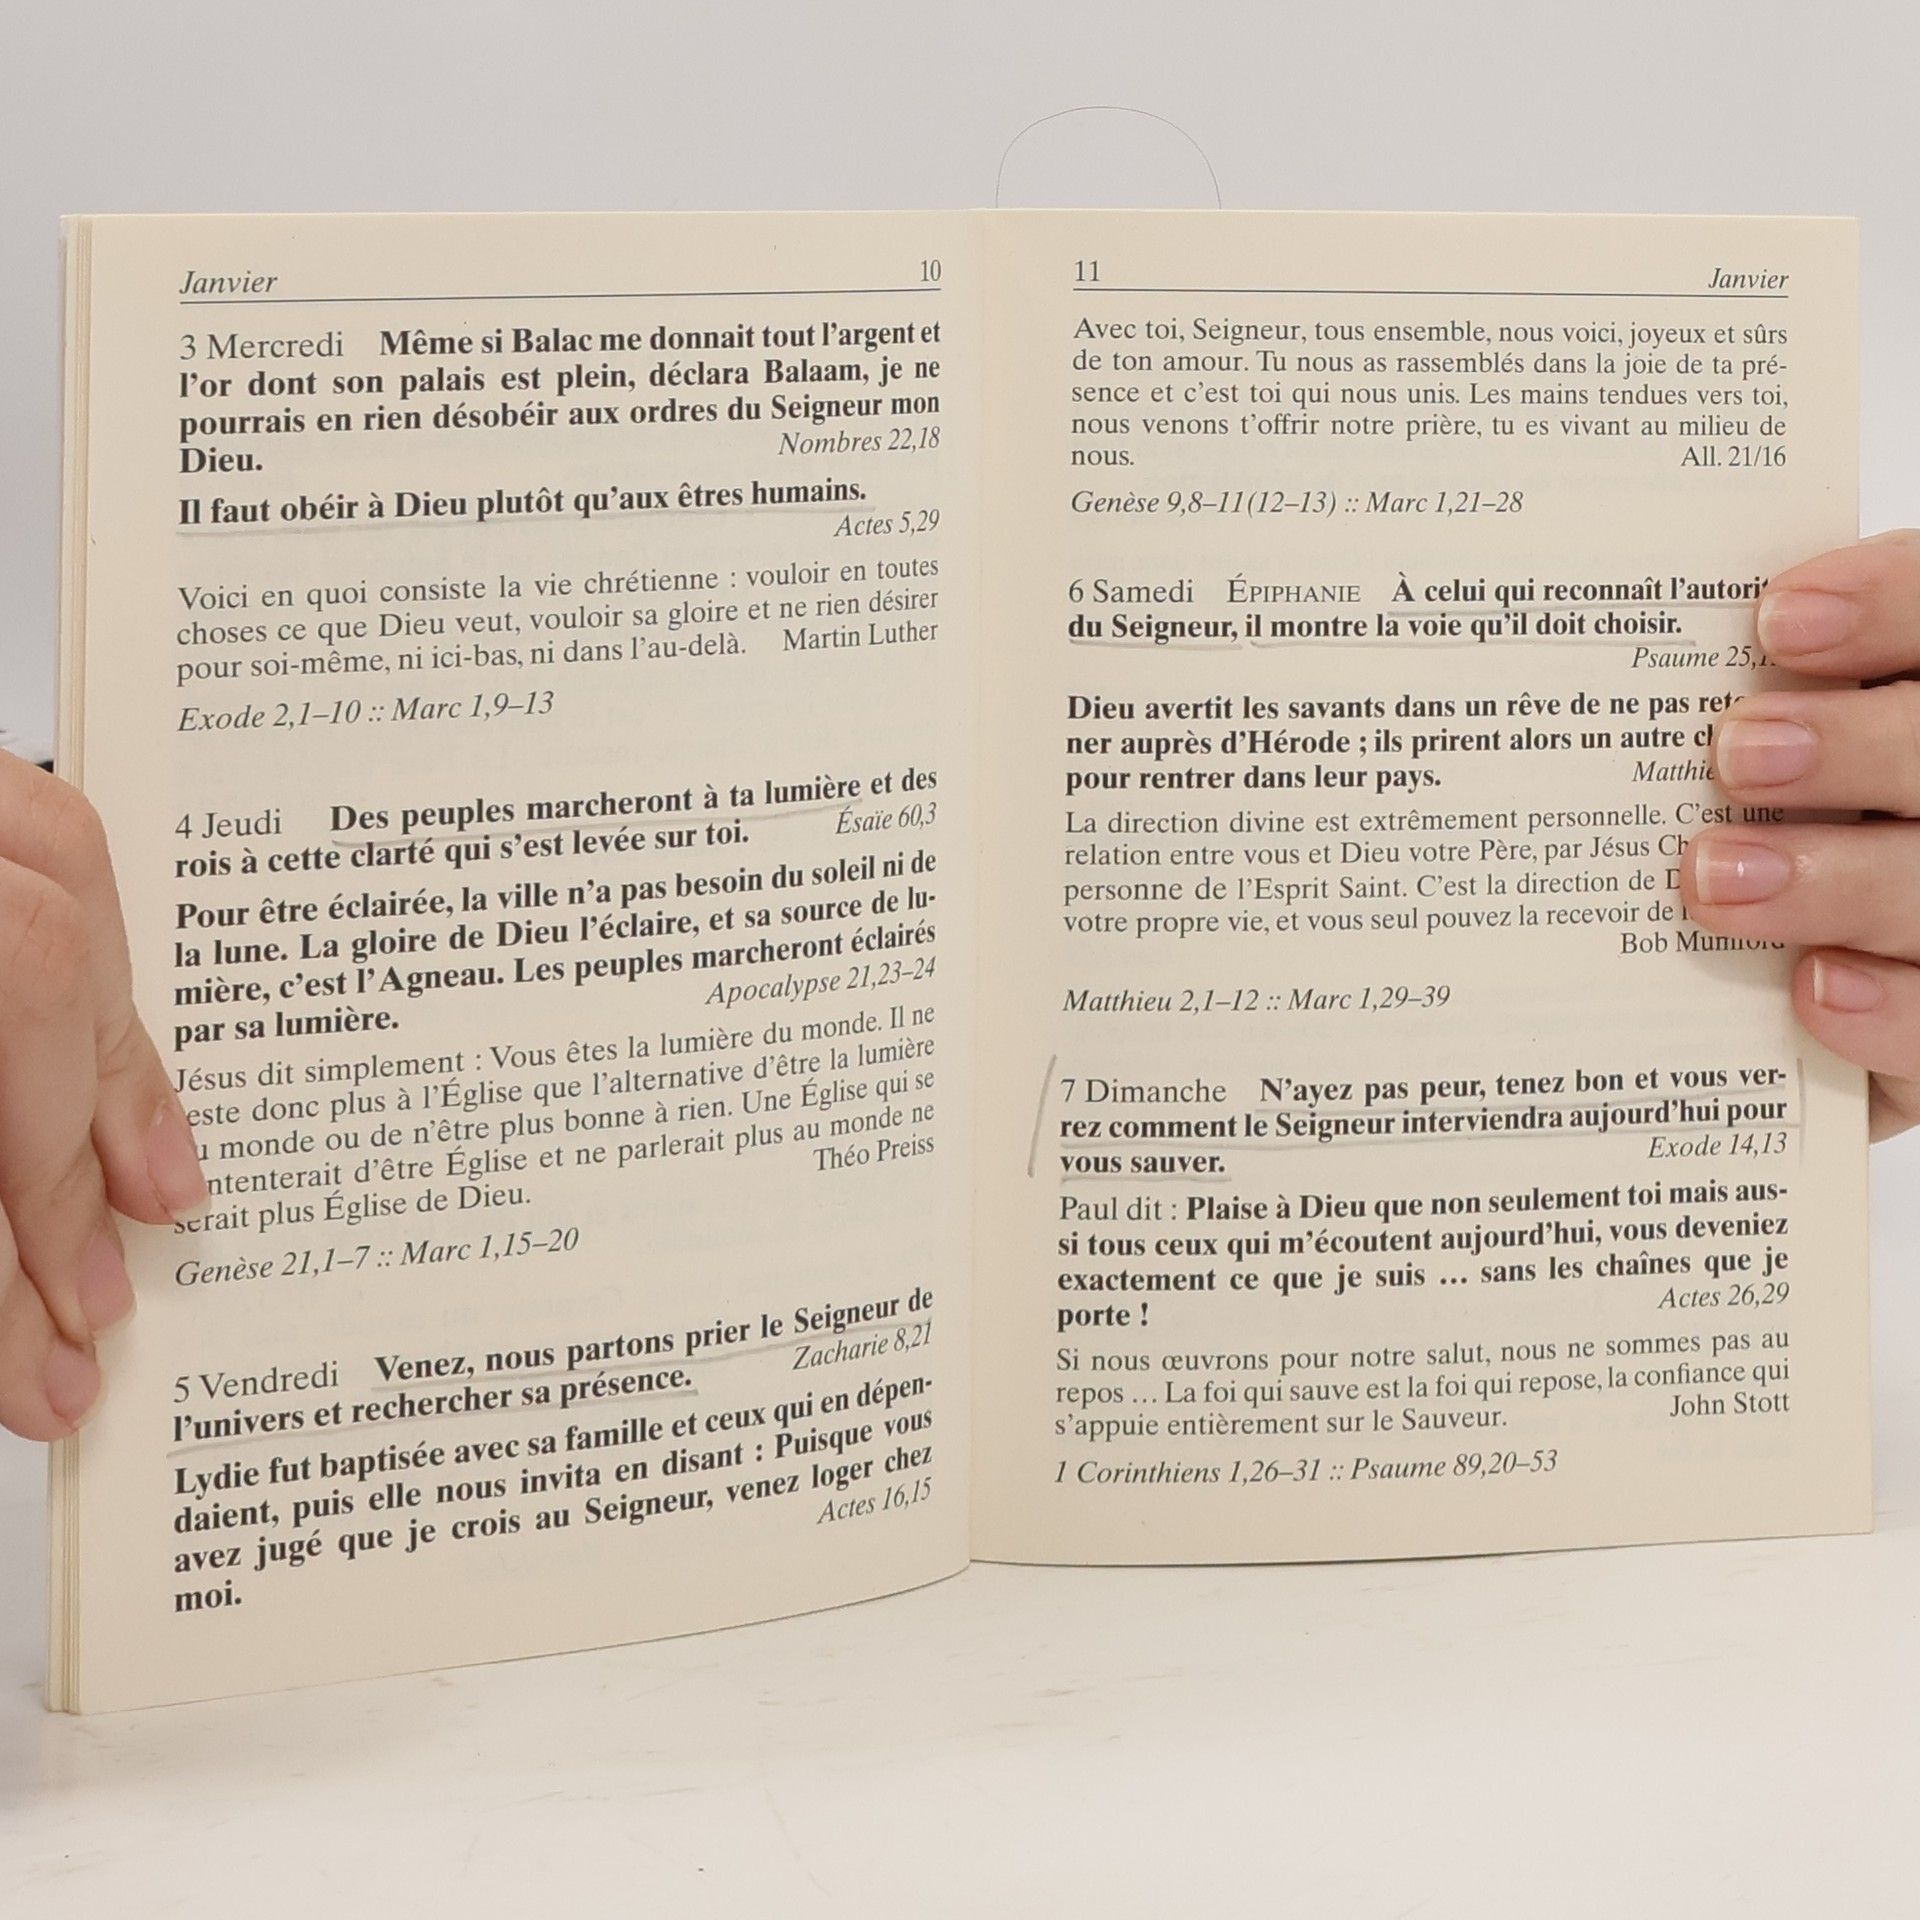 Janvier 10
3 Mercredi Même si Balac me donnait tout l'argent et
l'or dont son palais est plein, déclara Balaam, je ne
pourrais en rien désobéir aux ordres du Seigneur mon
Dieu. Nombres 22,18
Il faut obéir à Dieu plutôt qu'aux êtres humains.
Actes 5,29
Voici en quoi consiste la vie chrétienne : vouloir en toutes
choses ce que Dieu veut, vouloir sa gloire et ne rien désirer
pour soi-même, ni ici-bas, ni dans l'au-delà. Martin Luther
Exode 2,1–10 :: Marc 1,9–13
4 Jeudi Des peuples marcheront à ta lumière et des
rois à cette clarté qui s'est levée sur toi. Ésaïe 60,3
Pour être éclairée, la ville n'a pas besoin du soleil ni de
la lune. La gloire de Dieu l'éclaire, et sa source de lu-
mière, c'est l'Agneau. Les peuples marcheront éclairés
par sa lumière. Apocalypse 21,23–24
Jésus dit simplement : Vous êtes la lumière du monde. Il ne
este donc plus à l'Église que l'alternative d'être la lumière
monde ou de n'être plus bonne à rien. Une Église qui se
ntenterait d'être Église et ne parlerait plus au monde ne
serait plus Église de Dieu. Théo Preiss
Genèse 21,1–7 :: Marc 1,15–20
5 Vendredi Venez, nous partons prier le Seigneur de
l'univers et rechercher sa présence. Zacharie 8,21
Lydie fut baptisée avec sa famille et ceux qui en dépen-
daient, puis elle nous invita en disant : Puisque vous
avez jugé que je crois au Seigneur, venez loger chez
moi. Actes 16,15
11 Janvier
Avec toi, Seigneur, tous ensemble, nous voici, joyeux et sûrs
de ton amour. Tu nous as rassemblés dans la joie de ta pré-
sence et c'est toi qui nous unis. Les mains tendues vers toi,
nous venons t'offrir notre prière, tu es vivant au milieu de
nous. All. 21/16
Genèse 9,8–11(12–13) :: Marc 1,21–28
6 Samedi ÉPIPHANIE À celui qui reconnaît l'autori
du Seigneur, il montre la voie qu'il doit choisir.
Psaume 25,
Dieu avertit les savants dans un rêve de ne pas ret
ner auprès d'Hérode ; ils prirent alors un autre
pour rentrer dans leur pays. Matthie
La direction divine est extrêmement personnelle. C'est une
relation entre vous et Dieu votre Père, par Jésus Ch
personne de l'Esprit Saint. C'est la direction de
votre propre vie, et vous seul pouvez la recevoir de
Bob Mumford
Matthieu 2,1–12 :: Marc 1,29–39
7 Dimanche N'ayez pas peur, tenez bon et vous ver-
rez comment le Seigneur interviendra aujourd'hui pour
vous sauver. Exode 14,13
Paul dit : Plaise à Dieu que non seulement toi mais aus-
si tous ceux qui m'écoutent aujourd'hui, vous deveniez
exactement ce que je suis ... sans les chaînes que je
porte ! Actes 26,29
Si nous œuvrons pour notre salut, nous ne sommes pas au
repos ... La foi qui sauve est la foi qui repose, la confiance qui
s'appuie entièrement sur le Sauveur. John Stott
1 Corinthiens 1,26–31 :: Psaume 89,20–53